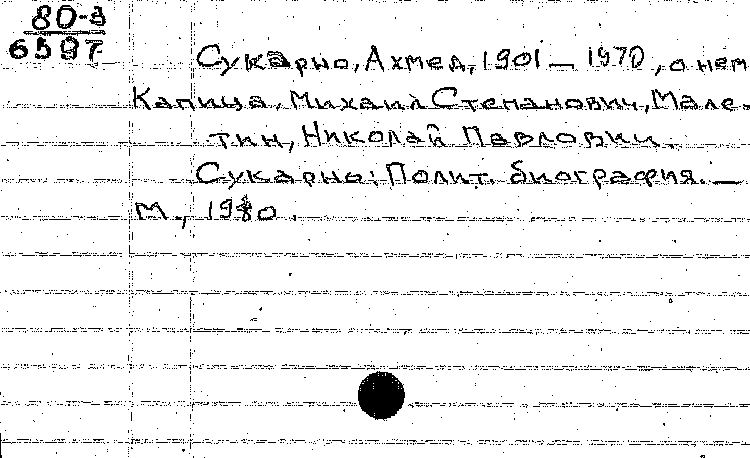 80-3
6597
Сукарно, Ахмед, 1901 — 1970, о нем
Капица, Михаил Степанович, Мале-
тин, Николай Павлович.
Сукарно: Полит. биография. —
М., 1980.